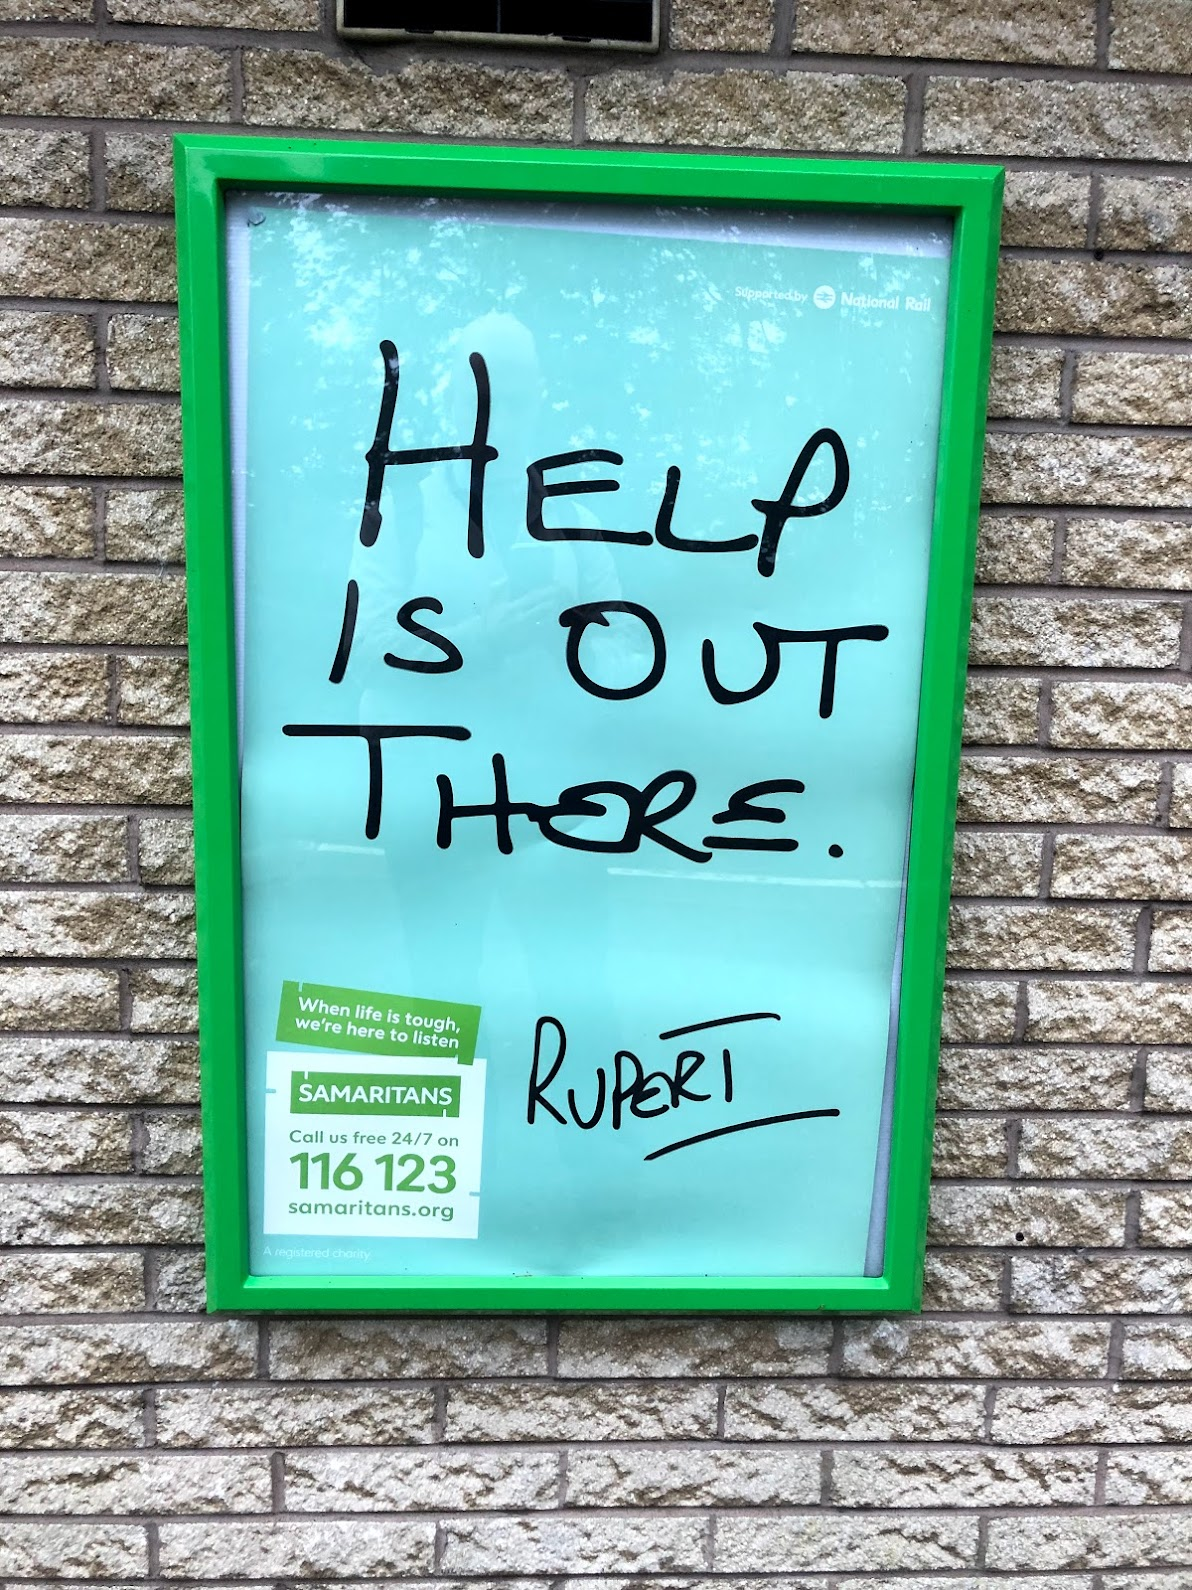 Supported by National Rail
HELP
IS OUT
THERE.
When life is tough,
we're here to listen
SAMARITANS
Call us free 24/7 on
116 123
samaritans.org
RUPERT
A registered charity